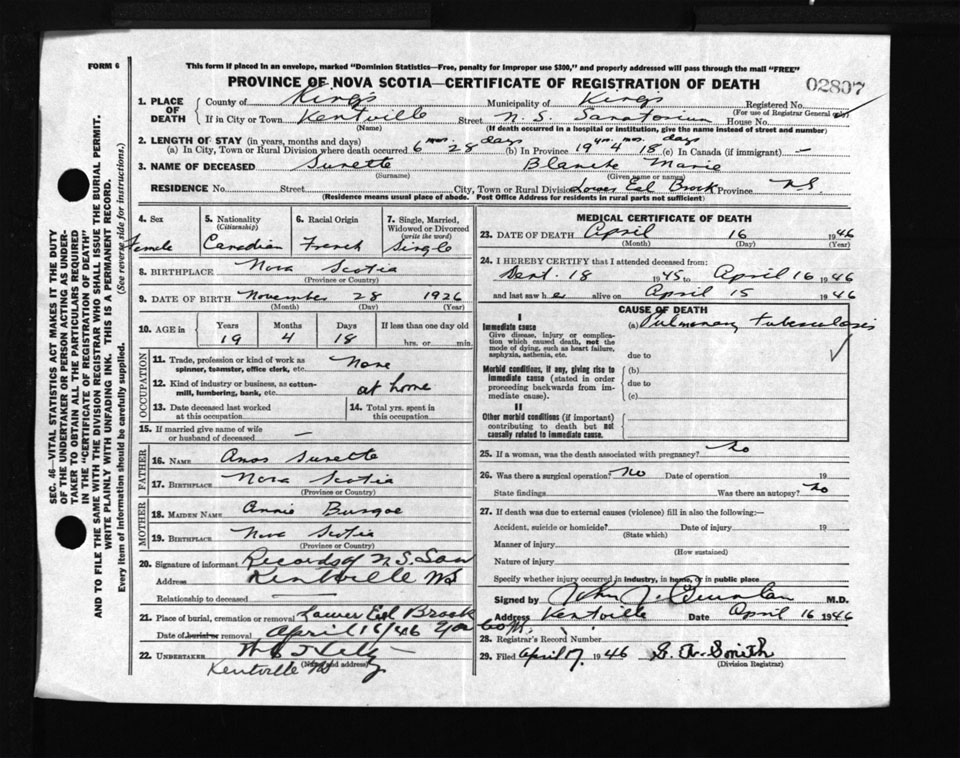 FORM 6
This form if placed in an envelope, marked "Dominion Statistics—Free, penalty for improper use $300," and properly addressed will pass through the mail "FREE"
PROVINCE OF NOVA SCOTIA—CERTIFICATE OF REGISTRATION OF DEATH
02807
1. PLACE OF DEATH
County of Kings Municipality of Kings Registered No.
(For use of Registrar General only)
If in City or Town Kentville Street N. S. Sanatorium House No.
(Name) (If death occurred in a hospital or institution, give the name instead of street and number)
2. LENGTH OF STAY (in years, months and days)
(a) In City, Town or Rural Division where death occurred 6 mos. 28 days (b) In Province 19 yrs. 4 mos. 18 days (c) In Canada (if immigrant) —
3. NAME OF DECEASED Surette Blanche Marie
(Surname) (Given name or names)
RESIDENCE No. Street City, Town or Rural Division Lower Eel Brook Province NS
(Residence means usual place of abode. Post Office Address for residents in rural parts not sufficient)
SEC. 46—VITAL STATISTICS ACT MAKES IT THE DUTY
OF THE UNDERTAKER OR PERSON ACTING AS UNDER-
TAKER TO OBTAIN ALL THE PARTICULARS REQUIRED
IN THE "CERTIFICATE OF REGISTRATION OF DEATH"
AND TO FILE THE SAME WITH THE DIVISION REGISTRAR WHO SHALL ISSUE THE BURIAL PERMIT.
WRITE PLAINLY WITH UNFADING INK. THIS IS A PERMANENT RECORD.
Every item of information should be carefully supplied. (See reverse side for instructions.)
4. Sex
Female
5. Nationality
(Citizenship)
Canadian
6. Racial Origin
French
7. Single, Married,
Widowed or Divorced
(write the word)
Single
8. BIRTHPLACE Nova Scotia
(Province or Country)
9. DATE OF BIRTH November 28 1926
(Month) (Day) (Year)
10. AGE in Years Months Days If less than one day old
19 4 18 hrs. or min.
OCCUPATION
11. Trade, profession or kind of work as
spinner, teamster, office clerk, etc. None
12. Kind of industry or business, as cotton-
mill, lumbering, bank, etc. at home
13. Date deceased last worked
at this occupation
14. Total yrs. spent in
this occupation
15. If married give name of wife
or husband of deceased —
FATHER
16. NAME Amos Surette
17. BIRTHPLACE Nova Scotia
(Province or Country)
MOTHER
18. MAIDEN NAME Annie
19. BIRTHPLACE Nova Scotia
(Province or Country)
20. Signature of informant Records of N.S. San
Address Kentville NS
Relationship to deceased —
21. Place of burial, cremation or removal Lower Eel Brook
Date of burial or removal April 16/46 Yar Co
22. UNDERTAKER
(Name and address)
Kentville NS
MEDICAL CERTIFICATE OF DEATH
23. DATE OF DEATH April 16 1946
(Month) (Day) (Year)
24. I HEREBY CERTIFY that I attended deceased from:
Sept. 18 1945 to April 16 1946
and last saw her alive on April 15 1946
CAUSE OF DEATH
I
Immediate cause (a) Pulmonary Tuberculosis
Give disease, injury or complica-
tion which caused death, not the
mode of dying, such as heart failure,
asphyxia, asthenia, etc. due to
Morbid conditions, if any, giving rise to
immediate cause (stated in order
proceeding backwards from im-
mediate cause). (b)
due to
(c)
II
Other morbid conditions (if important)
contributing to death but not
causally related to immediate cause.
25. If a woman, was the death associated with pregnancy? No
26. Was there a surgical operation? No Date of operation 19
State findings Was there an autopsy? No
27. If death was due to external causes (violence) fill in also the following:—
Accident, suicide or homicide? Date of injury 19
(State which)
Manner of injury
(How sustained)
Nature of injury
Specify whether injury occurred in industry, in home, or in public place
Signed by John J. Quinlan M.D.
Address Kentville Date April 16 1946
28. Registrar's Record Number
29. Filed April 17 1946 Smith
(Division Registrar)